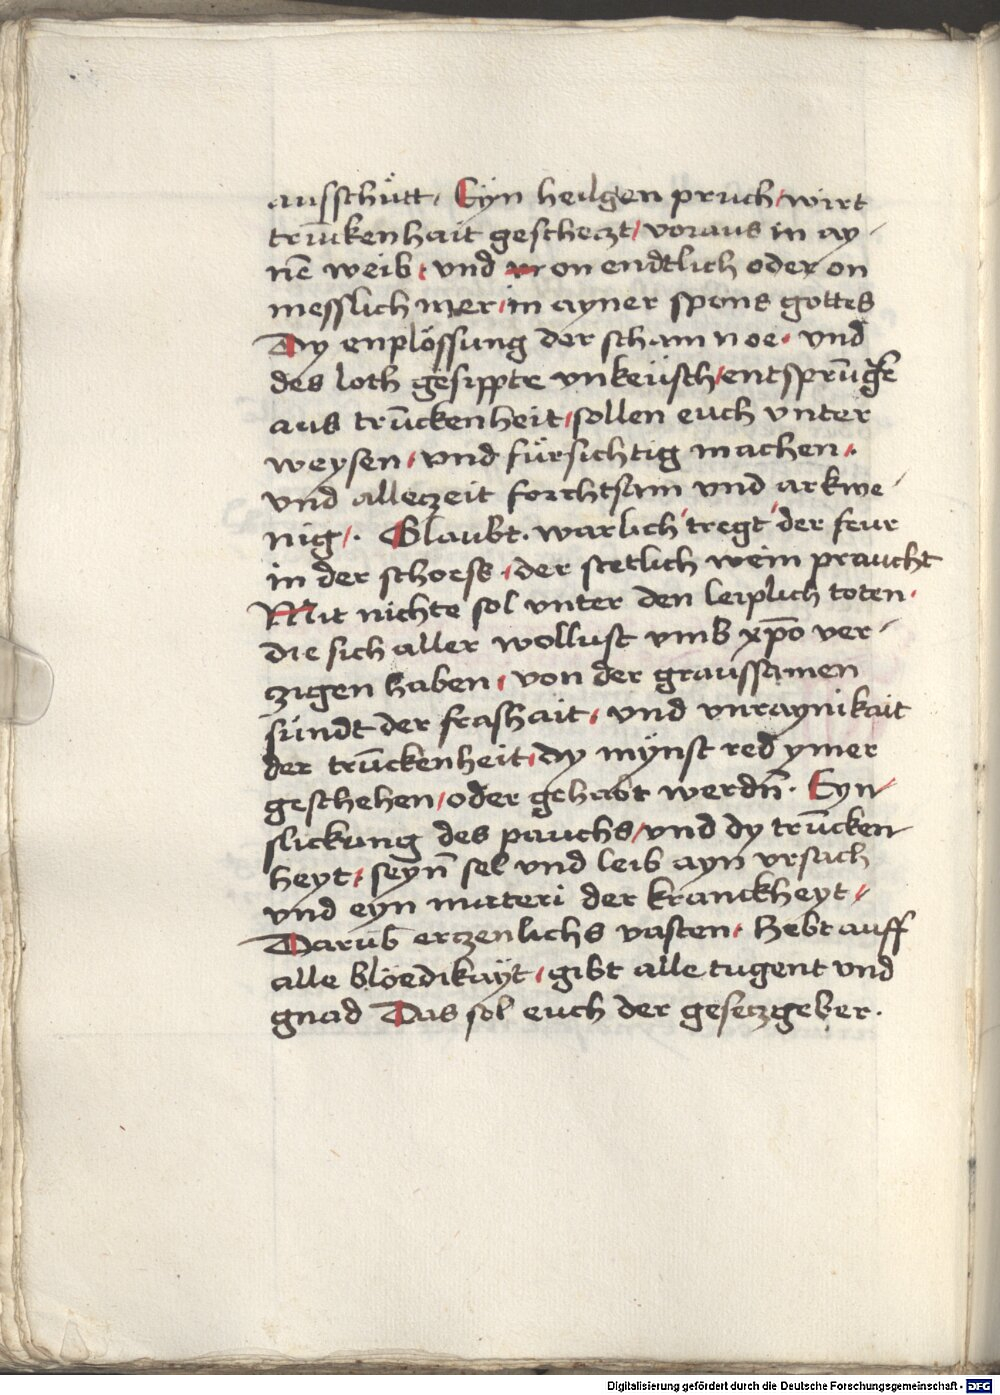 ausschütt. Eÿn heilgen pruch / wirt
trūckenhait gescheczt / voraus in ay-
nē weib / vnd on endtlich oder on
messlich mer / in ayner spons gottes
Dy enplössung der scham noe / vnd
des loth gesippte vnkeüsch / entsprūgē
aus trūckenheit / sollen euch vnter
weysen / vnd fürsichtig machen /.
vnd alleczeit forchtsam vnd arkwe-
nig /. Glaubt. warlich / tregt / der feur
in der schoess / der stetlich wein praucht
Mit nichte sol vnter den leiplich toten /
die sich aller wollust vmb xp̄o ver-
zigen haben / von der graussamen
sündt der frashait / vnd vnraynikait
der trūckenheit / dy mÿnst red ymer
geschehen / oder gehabt werdn̄. Eyn
slickung des pauchs / vnd dy trūcken
heyt / seyn̄ sel vnd leib ayn vrsach
vnd eyn materi der kranckheyt /
Darūb erczenlichs vasten / Hebt auff
alle blöedikaÿt / gibt alle tugent vnd
gnad Das sol euch der geseczgeber.
Digitalisierung gefördert durch die Deutsche Forschungsgemeinschaft - DFG